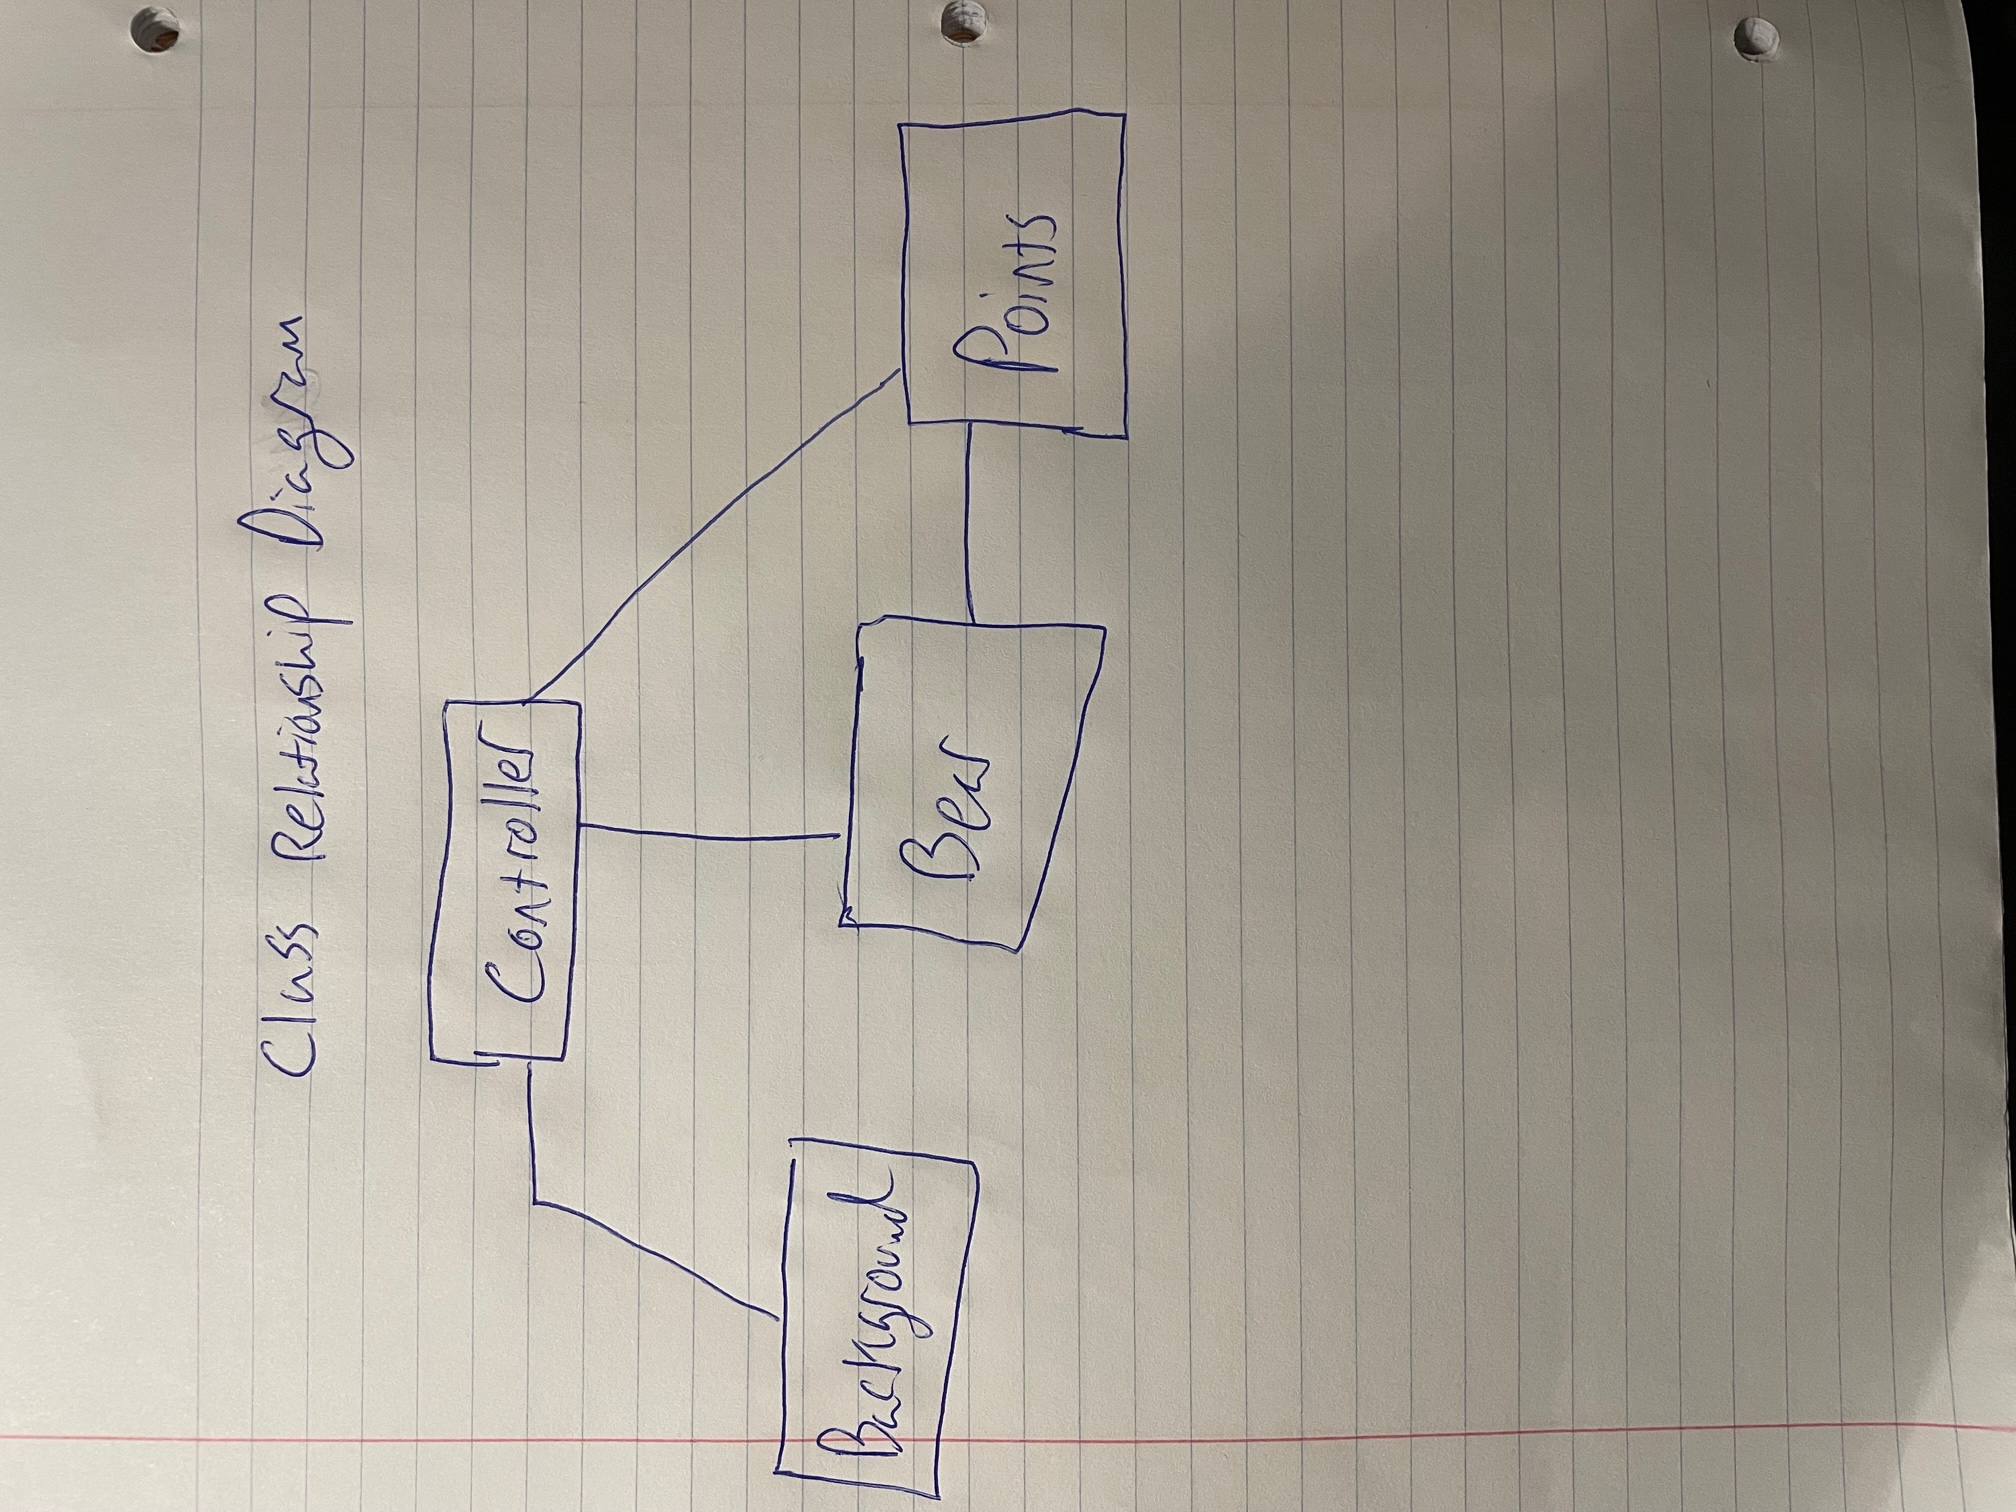 Class Relationship Diagram
Controller
Background
Bear
Points